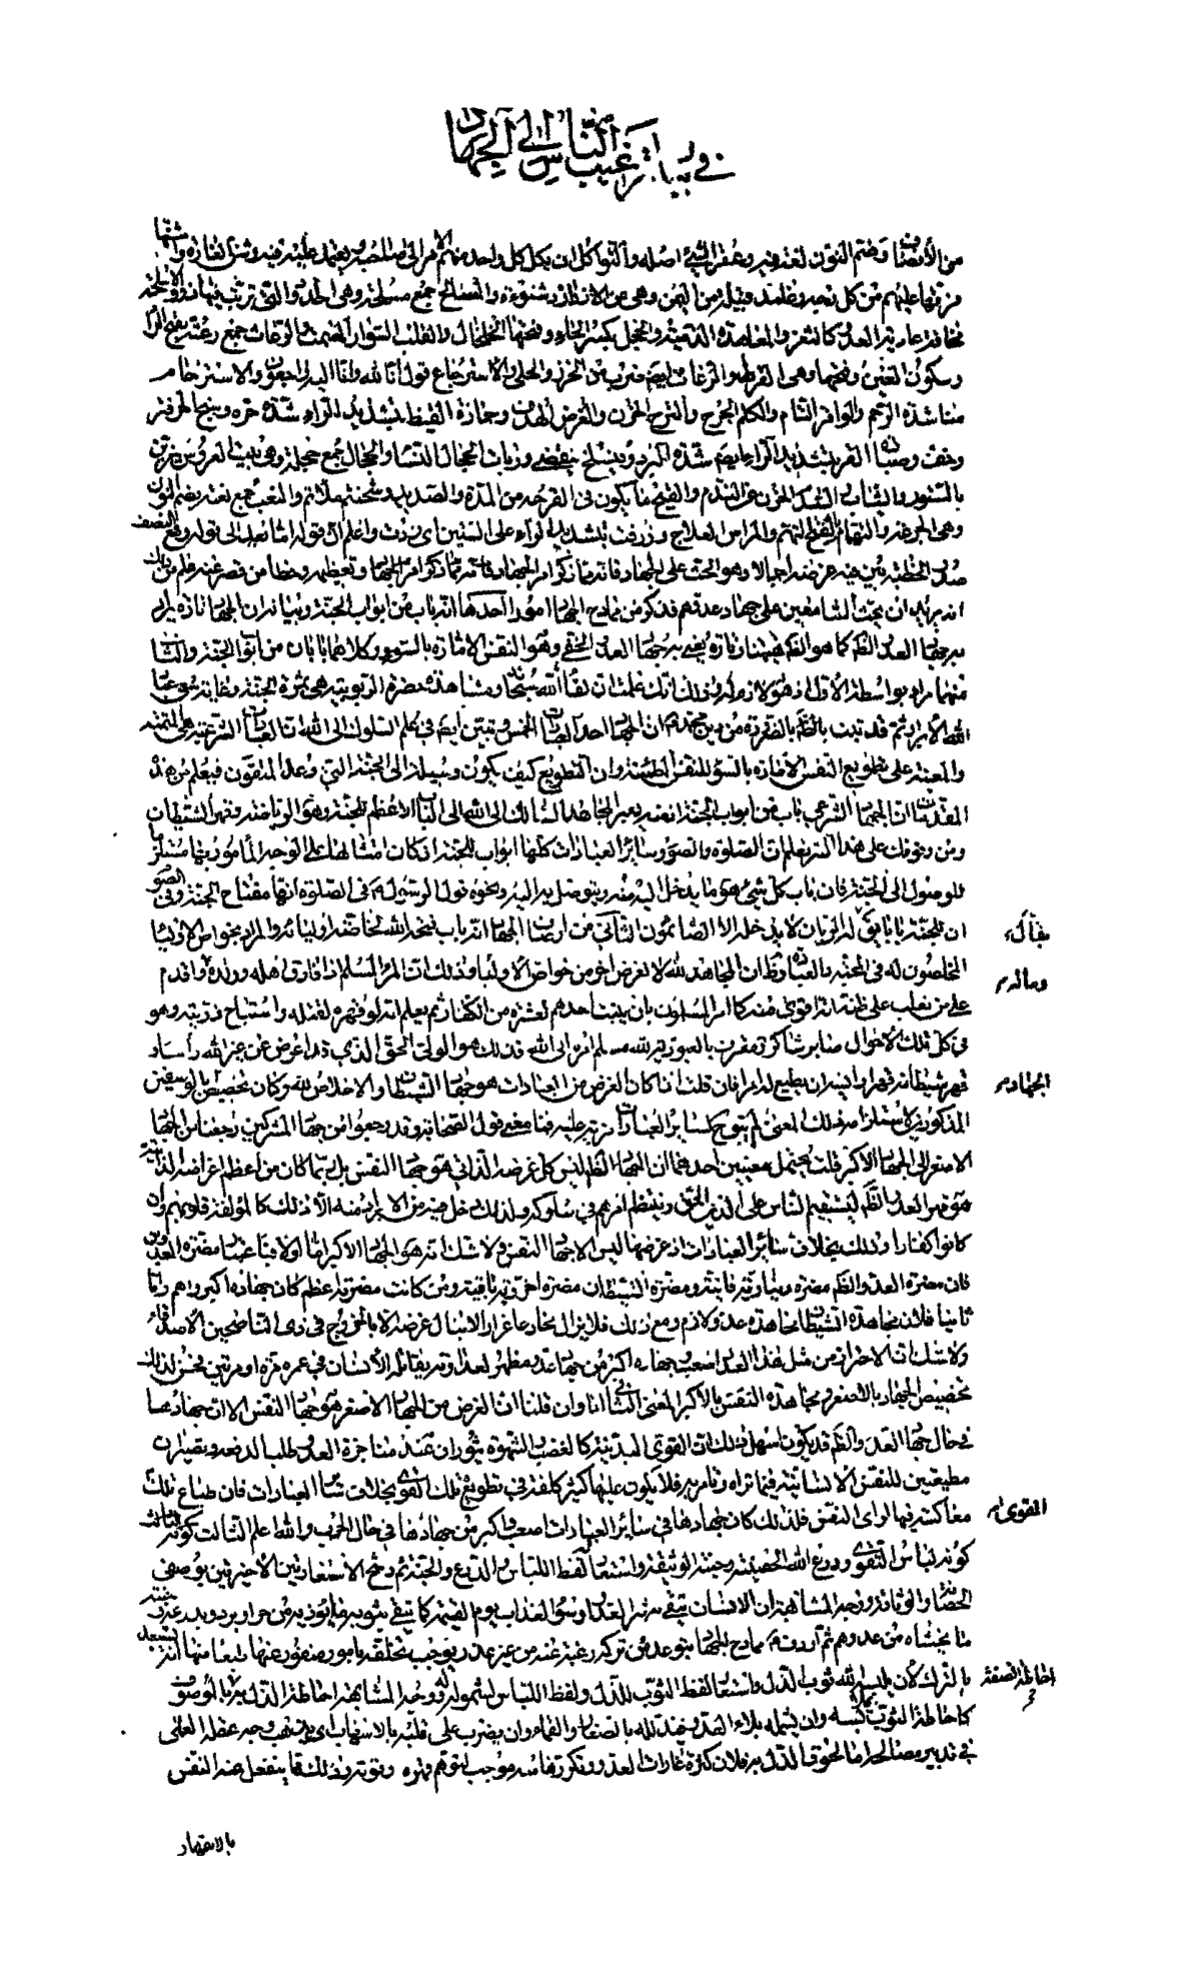 في بيان ترغيب الناس إلى الجهاد
من الأنصاف وضم النون لغة فيه وعقر الشيء اصله والتواكل ان يكل كل واحد منهم الأمر الى صاحبه ويعتمد عليه فيه وشن الغارة واشنها
فرقها عليهم من كل وجه وغامد قبيلة من اليمن وهي من الازد ازد شنوءة والمسالح جمع مسلحة وهى الحدود التي ترتب فيها ذوو الاسلحة
مخافة عادية العدو كالثغر والمعاهدة الذمية والحجل بكسر الحاء وفتحها الخلخال والقلب السوار المصمت والرعاث جمع رعثة بفتح الراء
وسكون العين وفتحها وهى القرط والرعاث ايضا ضرب من الخرز والحلى والاسترجاع قول انا لله وانا اليه راجعون والاسترحام
مناشدة الرحم والوافر التام والكلم الجرح والترح الحزن والغرض الهدف وحمارة القيظ بتشديد الراء شدة حره وسبخ الحر فتر
وخف وصبارة القر بتشديد الراء ايضا شدة البرد وينسلخ ينقضى وربات الحجال النساء والحجال جمع حجلة وهى بيت العروس يزين
بالستور والثياب السدم الحزن عن الندم والقيح ما يكون في القرحة من المدة والصديد وشحنتم ملأتم والنغب جمع نغبة بضم النون
وهى الجرعة والتهمام بالفتح الهم والمراس العلاج وذرفت بتشديد الراء على الستين اى زدت واعلم ان قوله اما بعد الى قوله ومنع النصف
صدر الخطبة يبين فيه غرضه اجمالا وهو الحث على الجهاد فانه لما ذكر امر الجهاد وتعظيمه وخطأ من قصر عنه فلم من ذلك
انه يريد ان يحث السامعين على جهاد عدوهم فذكر من ممادح الجهاد امورا احدها انه باب من ابواب الجنة وبيانه ان الجهاد تارة يراد
به جهاد العدو الظاهر كما هو الظاهر هيهنا وتارة يعنى به جهاد العدو الخفى وهو النفس الامارة بالسوء وكلاهما بابان من ابواب الجنة والثانى
منهما مراد بواسطة الأول اذ هو لازم له وذلك انك علمت ان لقاء الله سبحانه ومشاهدة حضرة الربوبية هى ثمرة الجنة وغاية سعى عباد
الله الأبرار ثم قد ثبت بالضرورة من دين محمد ان الجهاد احد العبادات الخمس وتبين ايضا في علم السلوك الى الله ان العبادات الشرعية هى المتممة
والمعينة على تطويع النفس الامارة بالسوء للنفس المطمئنة وان التطويع كيف يكون وسيلة الى الجنة التي وعد المتقون فيعلم من هذه
المقدمات ان الجهاد الشرعى باب من ابواب الجنة اذ منه يعبر المجاهد السالك الى الله الى الباب الاعظم للجنة وهو الرياضة وقهر الشيطان
ومن وقوفك على هذا السر تعلم ان الصلوة والصوم وسائر العبادات كلها ابواب للجنة اذ كان امتثالها على الوجه المأمور بها مستلزما
للوصول الى الجنة فان باب كل شىء هو ما يدخل اليه منه ويتوصل به اليه ونحوه قول الرسول في الصلوة انها مفتاح الجنة وفى الصوم
ان للجنة بابا يقال له الريان لا يدخله الا الصائمون الثاني من اوصاف الجهاد انه باب فتحه الله لخاصة اوليائه والمراد بخواص الاولياء
المخلصون له في المحبة والعبادة وظاهر ان المجاهد لله لا لغرض اخر من خواص الاولياء وذلك ان المرء المسلم اذا فارق اهله وولده وماله واقدم
على من يغلب على ظنه انه اقوى منه كما امر المسلمون بان يثبت احدهم لعشرة من الكفار ثم يعلم انه لو قهره لقتله واستباح ذريته وهو
في كل تلك الأحوال صابر شاكر معترف بالعبودية لله مسلم امره الى الله فذلك هو الولى الحق الذي قد اعرض عن غير الله رأسا و
قهر شيطانه قهرا وايسه ان يطيع له امرا فان قلت اذا كان الغرض من العبادات هو جهاد الشيطان والاخلاص لله وكان تخصيص الجهاد بالوصفين
المذكورين لاستلزامه ذلك المعنى لم يتوجه كسائر العبادات مزية عليه فما معنى قول الصحابة وقد رجعوا من جهاد المشركين رجعنا من الجهاد
الاصغر الى الجهاد الاكبر قلت يحتمل معنيين احدهما ان الجهاد الظاهر ليس كل غرضه الذاتى هو جهاد النفس بل ربما كان من اعظم اغراضه الذاتية
هو قهر العدو الظاهر ليستقيم الناس على الدين الحق وينتظم امرهم في سلوكه ولذلك دخل فيه من لا يراد منه الا ذلك كالمؤلفة قلوبهم وان
كانوا كفارا وذلك بخلاف سائر العبادات اذ غرضها ليس الا جهاد النفس ولا شك انه هو الجهاد الاكبر اما اولا فباعتبار مضرة العدوين
فان مضرة العدو الظاهر مضرة دنياوية فانية ومضرة الشيطان مضرة اخروية باقية ومن كانت مضرته اعظم كان جهاده اكبر واهم واما
ثانيا فلان مجاهدة الشيطان مجاهدة عدو لازم ومع ذلك فلا يزال مخادعا غرارا لا ينال غرضه الا بالخروج في زى الناصحين الاصدقاء
ولا شك ان الاحتراز من مثل هذا العدو اصعب وجهاده اكبر من جهاد عدو مظهر لعداوته يقاتله الأنسان في عمره مرة او مرتين فحسن لذلك
تخصيص الجهاد بالاصغر ومجاهدة النفس بالأكبر المعنى الثانى انا وان قلنا ان الغرض من الجهاد الاصغر هو جهاد النفس الا ان جهادها
في حال جهاد العدو الظاهر قد يكون اسهل وذلك ان القوى البدنية كالغضب والشهوة يثوران عند مناجزة العدو طلبا لدفعه وتصيران
مطيعتين للنفس الانسانية فيما تراه وتأمر به فلا يكون عليها كثير كلفة في تطويع تلك القوى بخلاف سائر العبادات فان طباع تلك
القوى معاكسة فيها لراى النفس فلذلك كان جهادها في سائر العبادات اصعب واكبر من جهادها في حال الحرب والله اعلم الثالث
كونه لباس التقوى ودرع الله الحصينة وجنته الوثيقة واستعار لفظ اللباس والدرع والجنة ثم رشح الاستعارتين الاخيرتين بوصفى
الحصانة والوثاقة ووجه المشابهة ان الانسان يتقى به شر العدو وسوء العذاب يوم القيمة كما يتقى بثوبه ما يؤذيه من حر او برد وبدرعه وجنته
ما يخشاه من عدوهم ثم اردف ممادح الجهاد بتوعد من تركه رغبة عنه من غير عذر يوجب تخلفه بامور منفور عنها طبعا منها انه يستعد
بالترك لان يلبسه الله ثوب الذل واستعار لفظ الثوب للذل ولفظ اللباس لشموله له ووجه المشابهة احاطة الذل به احاطة الصفة بالموصوف
كاحاطة الثوب بملابسه وان يشمله بلاء العدو فيذلله بالصغار والقماءة وان يضرب على قلبه بالاسهاب اى يذهب وجه عقله العملى
في تدبير مصالحه اما لحوق الذل به فلان كثرة غارات العدو وتكررها منه موجب لتوهم قهره وقوته وذلك مما ينفعل عنه النفس
بالانقهار